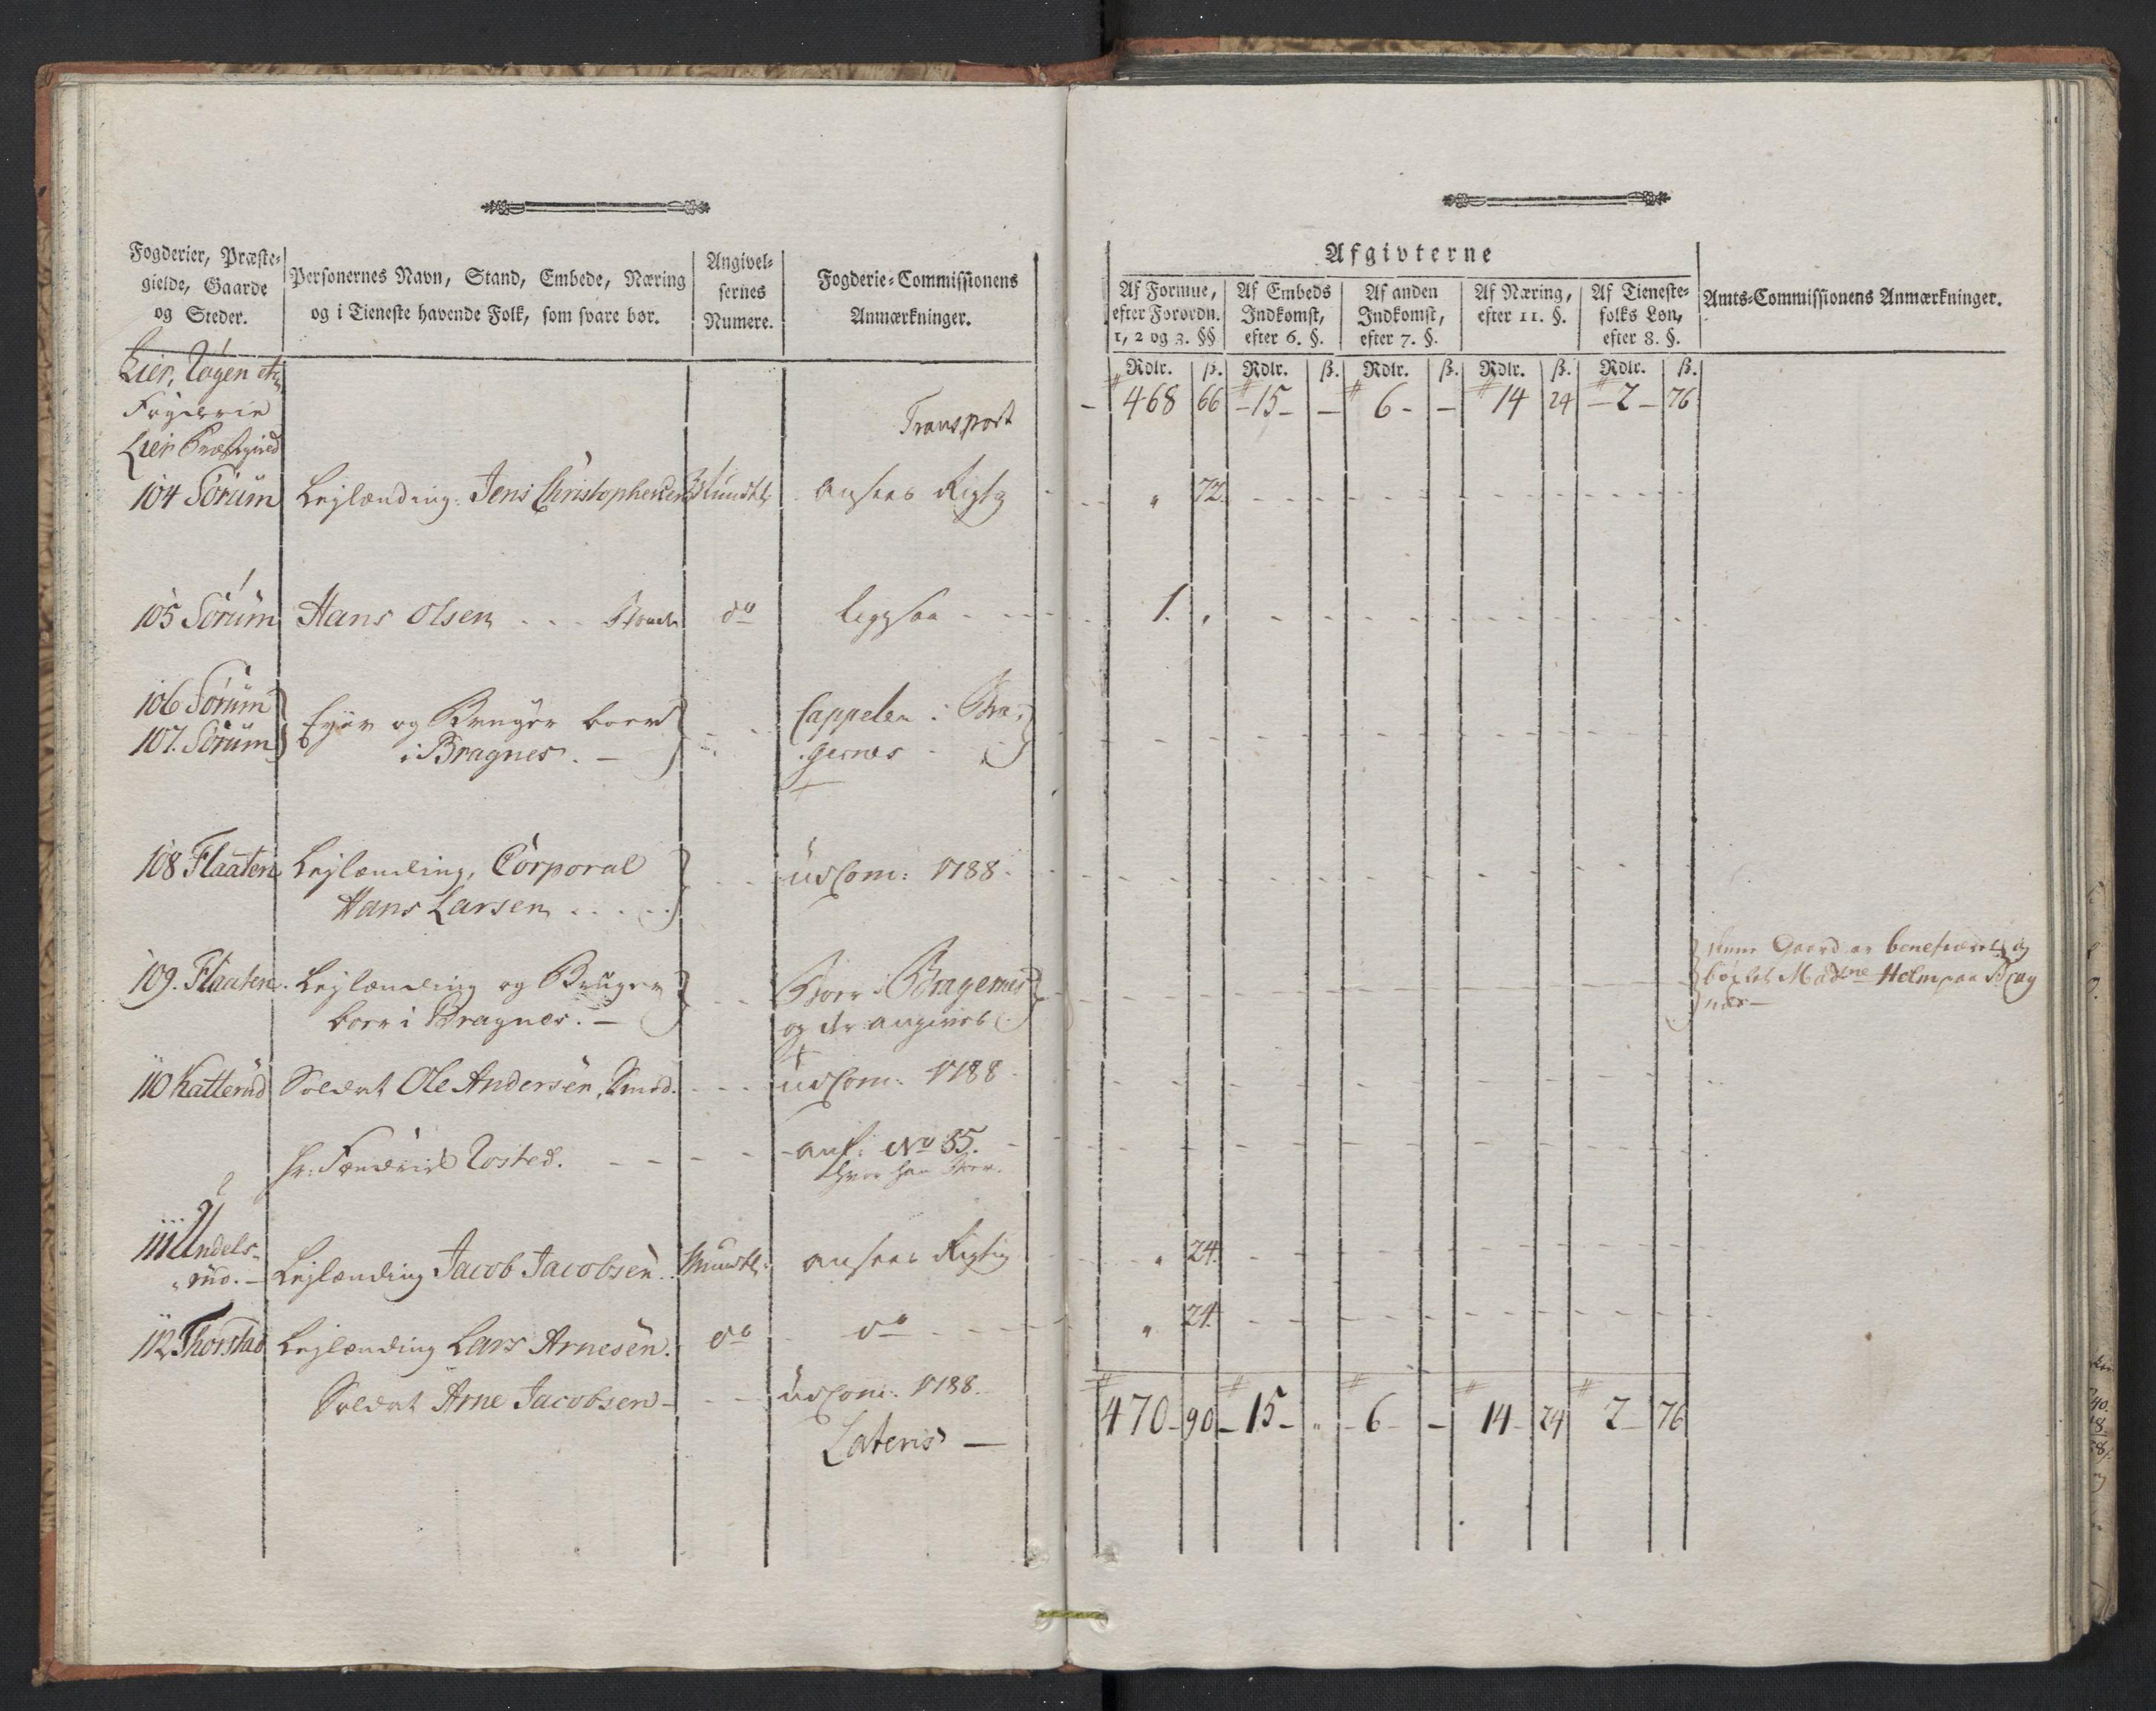 Fogderier, Præste-
gielde, Gaarde
og Steder.
Personernes Navn, Stand, Embede, Næring
og i Tieneste havende Folk, som svare bør.
Angivel-
sernes
Numere.
Fogderie-Commissionens
Anmærkninger.
Afgivterne
Af Formue,
efter Forordn.
1, 2 og 3. §§
Af Embeds
Indkomst,
efter 6. §.
Af anden
Indkomst,
efter 7. §.
Af Næring,
efter 11. §.
Af Tieneste-
folks Løn,
efter 8. §.
Amts-Commissionens Anmærkninger.
Rdlr. ß. Rdlr. ß. Rdlr. ß. Rdlr. ß. Rdlr. ß.
Lier, Røgen etc
Fogderie
Lier Præstegield
Transport – 468 66 – 15 – – 6 – – 14 24 – 2 – 76
104 Sørum Lejlænding: Jens Christophersen Mundtl. ansees Rigtig „ 72.
105 Sørum Hans Olsen . . . do ligesaa 1. „
106 Sørum
107. Sørum
Ejer og Bruger boer
i Bragnes. –
Cappelen i Bra-
gernes
108 Flaaten Lejlænding, Corporal
Hans Larsen . . . .
udCom: 1788.
109. Flaaten. Lejlænding og Bruger
boer i Bragnes. –
Boer i Bragernes
og der angives
denne Gaard er beneficeret og
bøxlet Madme Helm paa Brag
næs –
110 Katterud Soldat Ole Andersen, Smed. udCom: 1788
Hr: Fendrich Rosted. – – – – anf: No 35.
hvor han boer.
111 Undels-
rud. – Lejlænding Jacob Jacobsen. Mundtl: ansees Rigtig „ 24.
112 Thorstad Lejlænding Lars Arnesen. do do „ 24.
Soldat Arne Jacobsen – udCom: 1788.
Lateris – 470 – 90 – 15 – „ – 6 – – 14 – 24 2 – 76